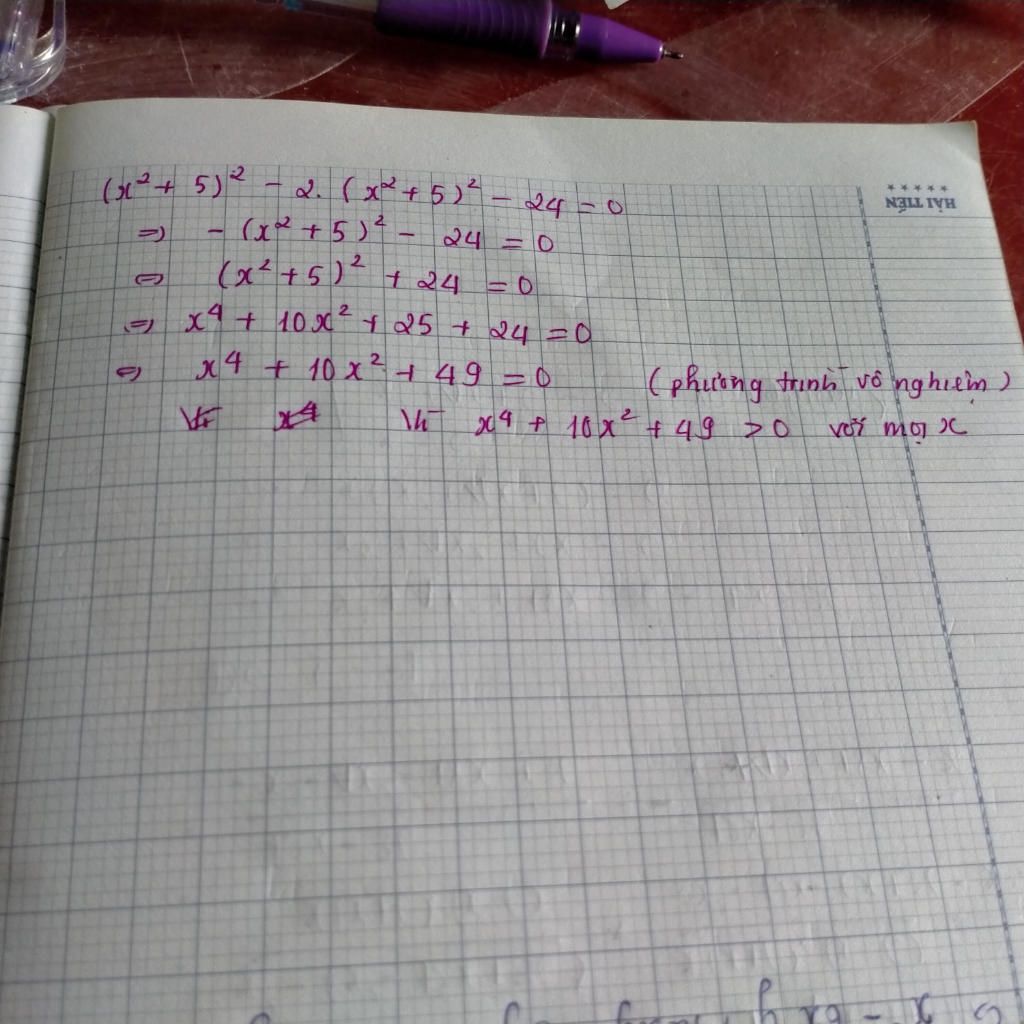 (x² + 5)² - 2. (x² + 5)² - 24 = 0
⇒ - (x² + 5)² - 24 = 0
⇔ (x² + 5)² + 24 = 0
⇒ x⁴ + 10x² + 25 + 24 = 0
⇔ x⁴ + 10x² + 49 = 0 (phương trình vô nghiệm)
Vì x⁴ + 10x² + 49 > 0 với mọi x
HẢI TIẾN